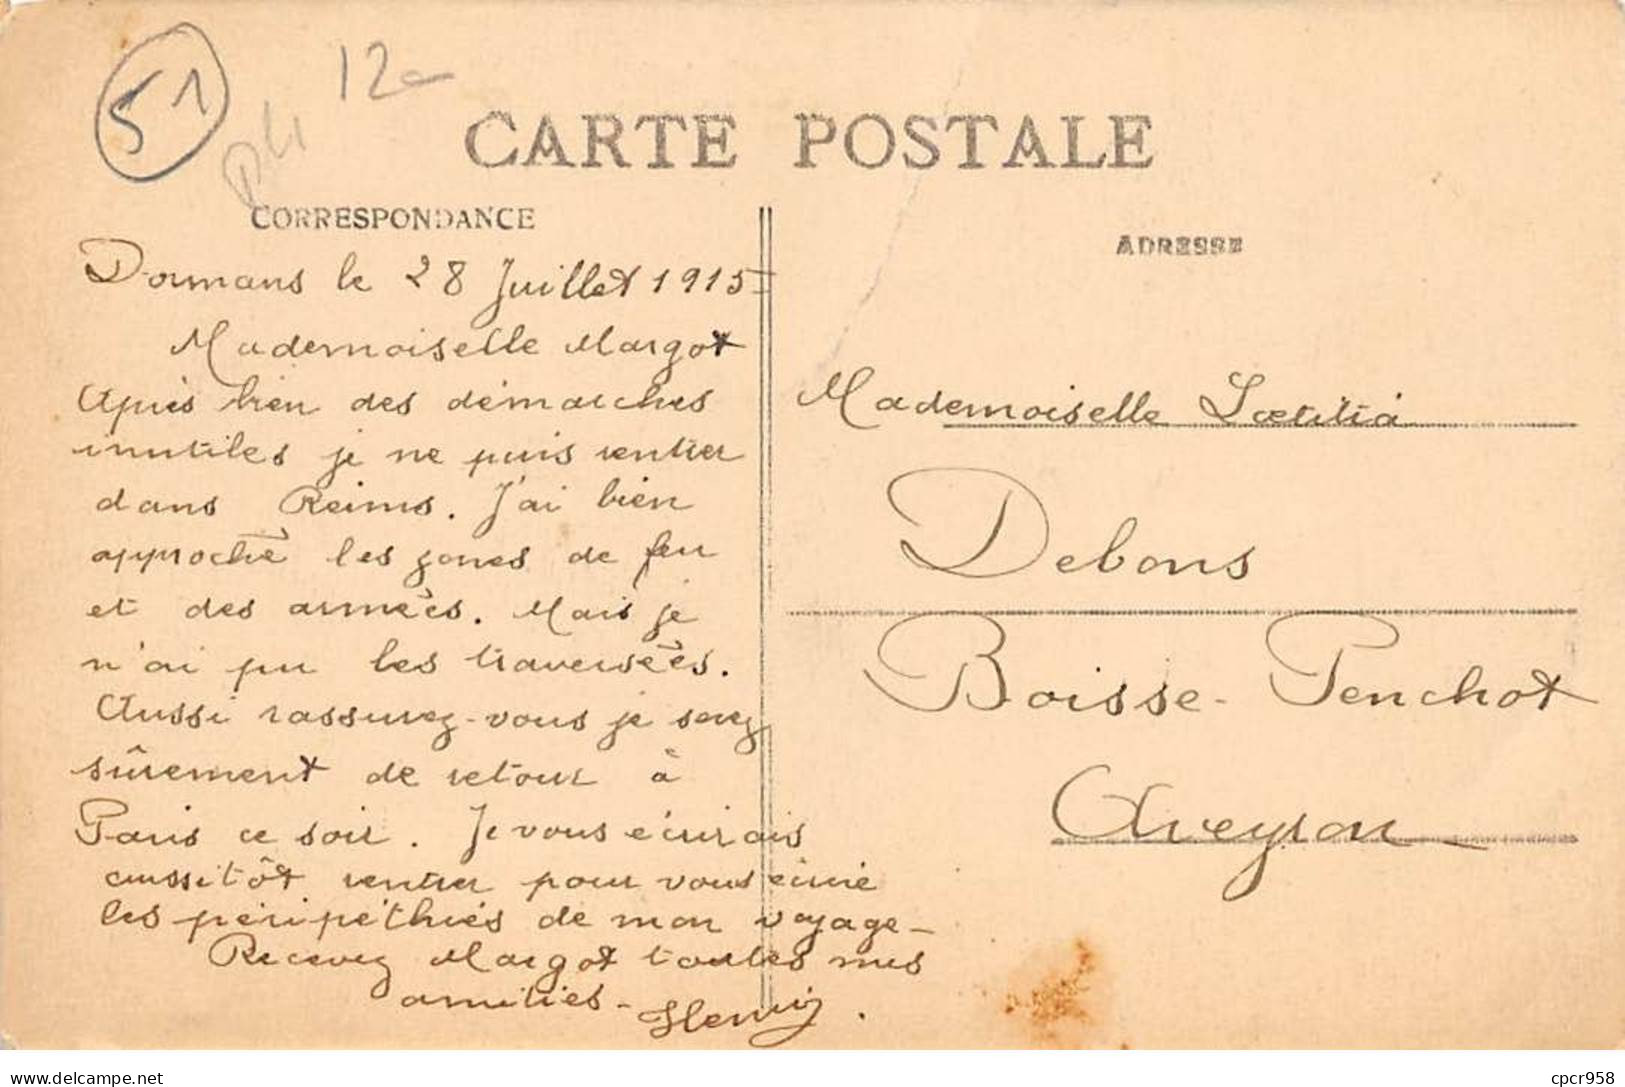 51
12
CARTE POSTALE
CORRESPONDANCE
Dormans le 28 Juillet 1915
Mademoiselle Margot
Après bien des démarches
inutiles je ne puis rentrer
dans Reims. J'ai bien
approché les zones de feu
et des armées. Mais je
n'ai pu les traversées.
Aussi rassurez-vous je serez
sûrement de retour à
Paris ce soir. Je vous écrirais
aussitôt rentrer pour vous écrire
les péripéthies de mon voyage-
Recevez Margot toutes mes
amitiés- Henry.
ADRESSE
Mademoiselle Lœtitia
Debons
Boisse-Penchot
Aveyron
delcampe.net
cpcr958